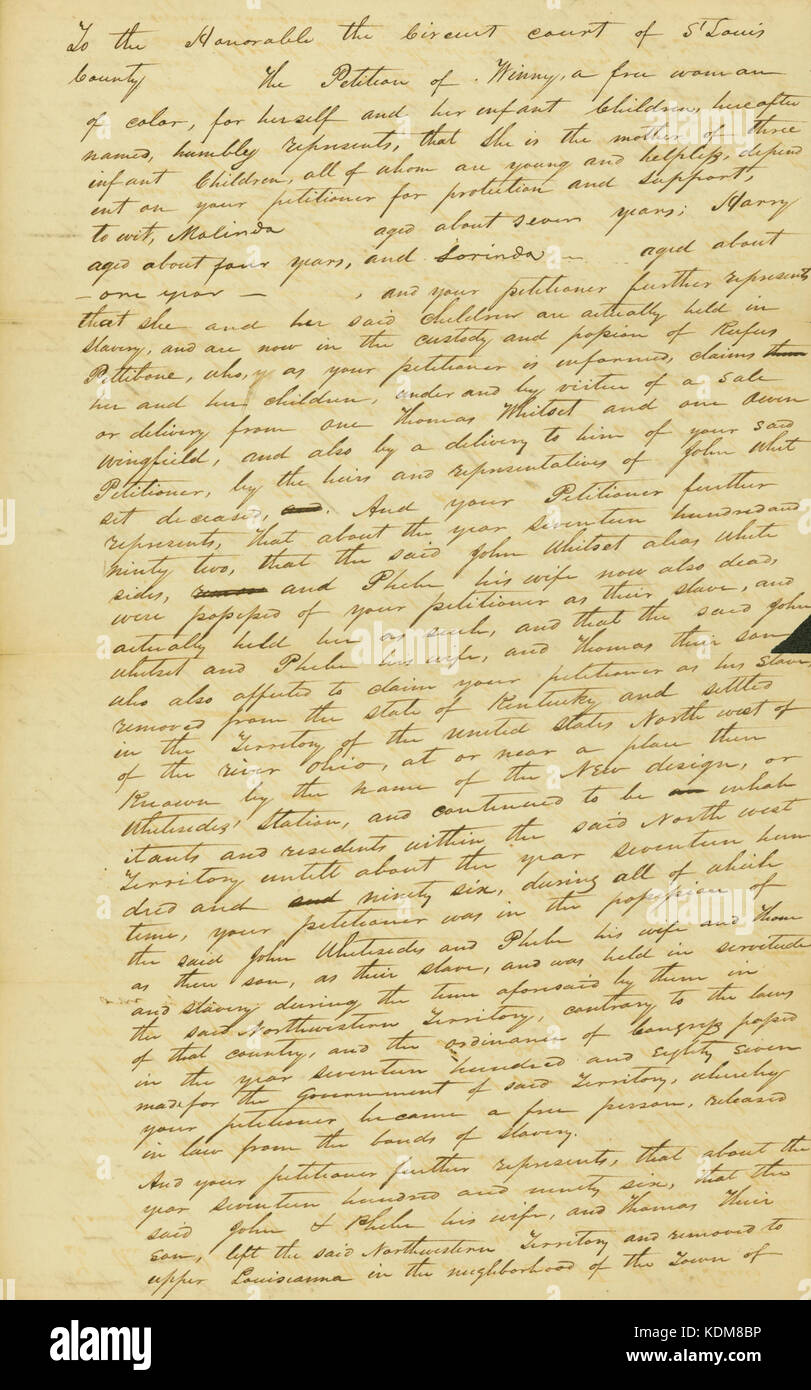 To the Honorable the Circuit court of St Louis
County The Petition of Winny, a free woman
of color, for herself and her infant Children, hereafter
named, humbly represents, that she is the mother of three
infant Children, all of whom are young and helpless, depend
ent on your petitioner for protection and support,
to wit, Malinda aged about seven years; Harry
aged about four years, and Lorinda aged about
– one year – , and your petitioner further represents
that she and her said children are actually held in
slavery, and are now in the custody and possion of Rufus
Pettibone, who, as your petitioner is informed, claims them
her and her children, under and by virtue of a sale
or delivery from one Thomas Whitset and one Owen
Wingfield, and also by a delivery to him of your said
Petitioner, by the heirs and representatives of John Whit
set deceased, and. And your Petitioner further
represents, that about the year seventeen hundred and
ninty two, that the said John Whitset alias White
sides, and Phebe his wife now also dead,
were possessed of your petitioner as their slave, and
actually held her as such, and that the said John
Whitset and Phebe his wife, and Thomas their son
who also affected to claim your petitioner as his slave,
removed from the state of Kentucky and settled
in the Territory of the united states North west of
of the river Ohio, at or near a place then
Known by the name of the New design, or
Whitesides' Station, and continued to be an inhab
itants and residents within the said North west
Territory untill about the year seventeen hun
dred and and ninity six, during all of which
time, your petitioner was in the possession of
the said John Whitesides and Phebe his wife and Thom
as their son, as their slave, and was held in servitude
and slavery during the time aforesaid by them in
the said Northwestern Territory, contrary to the laws
of that country, and the ordinance of Congress passed
in the year seventeen hundred and Eighty Seven
made for the government of said Territory, whereby
your petitioner became a free person, released
in law from the bonds of slavery.
And your petitioner further represents, that about the
year seventeen hundred and ninety six, that the
said John & Phebe his wife, and Thomas Their
son, left the said Northwestern Territory and removed to
upper Louisianna in the neighborhood of the Town of
alamy
Image ID: KDM8BP
www.alamy.com